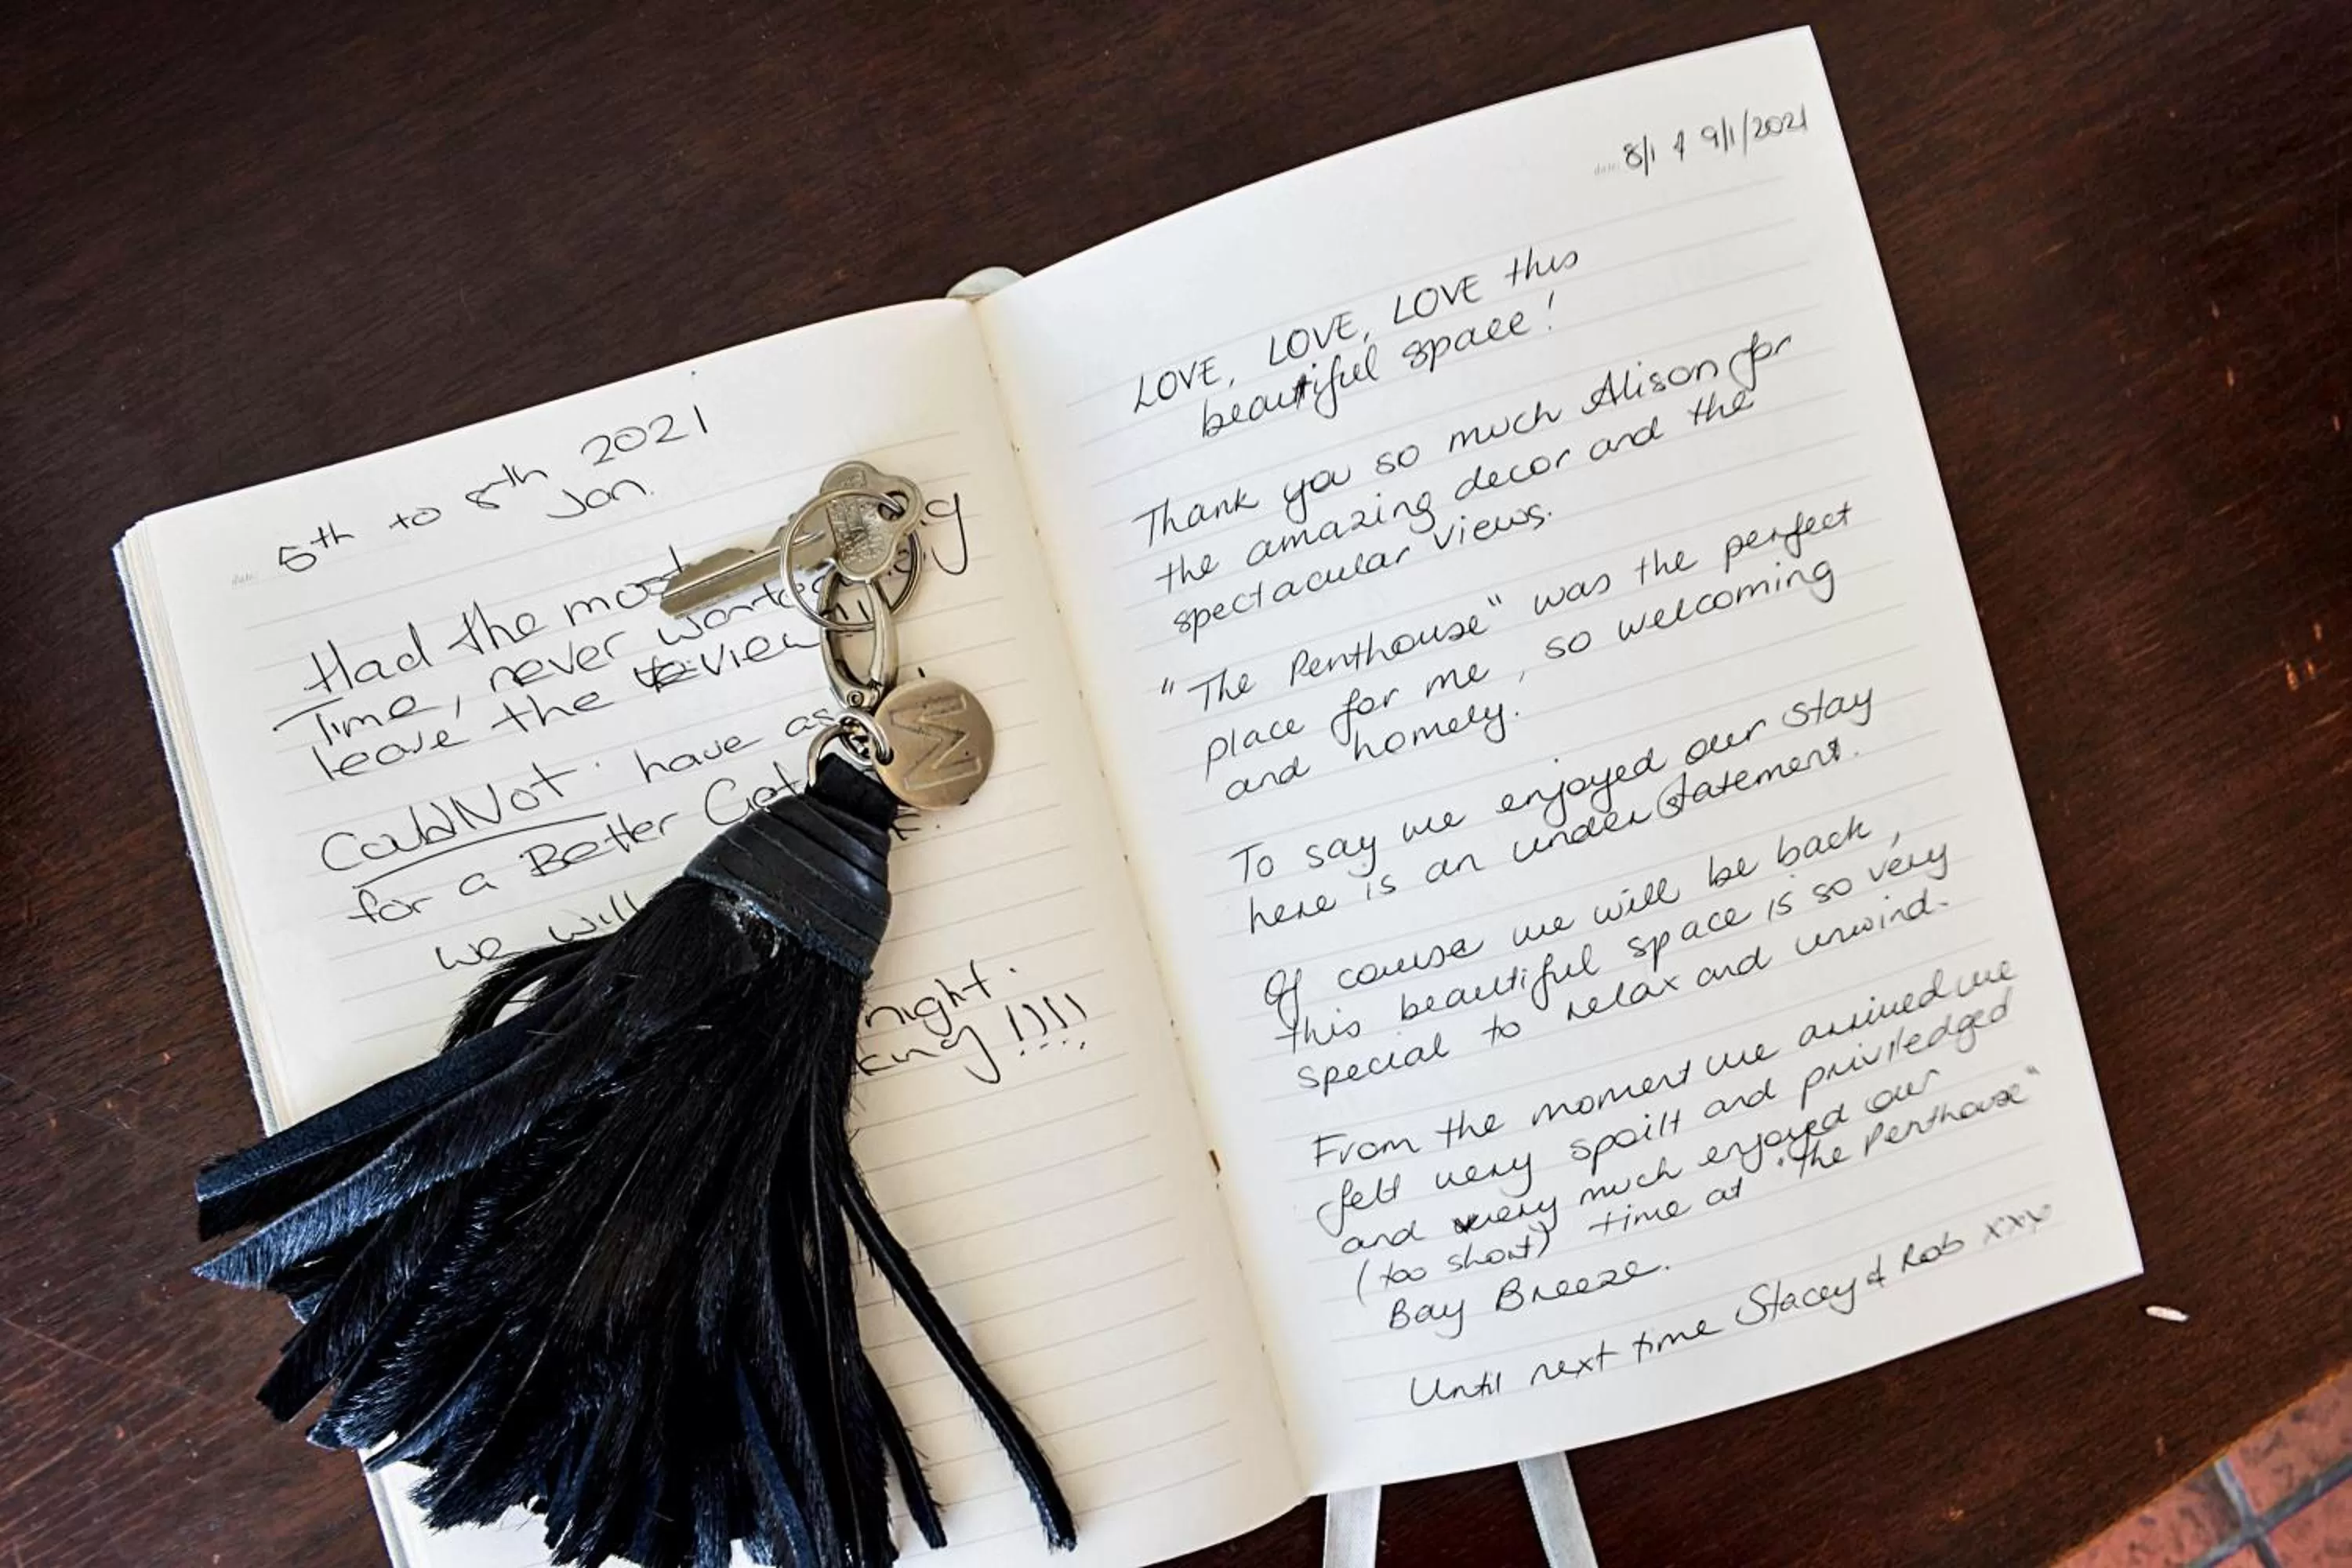 5th to 8th 2021
Jan.
Had the most
Time, never wanted
leave the view
Could Not have as
for a Better Get
we will
night.
!!!!
M
date: 8/1 & 9/1/2021
LOVE, LOVE, LOVE this
beautiful space!
Thank you so much Alison for
the amazing decor and the
spectacular views.
"The Penthouse" was the perfect
place for me, so welcoming
and homely.
To say we enjoyed our stay
here is an understatement.
Of course we will be back,
this beautiful space is so very
special to relax and unwind.
From the moment we arrived we
felt very spoilt and priviledged
and very much enjoyed our
(too short) time at "The Penthouse"
Bay Breeze.
Until next time Stacey & Rob xxx